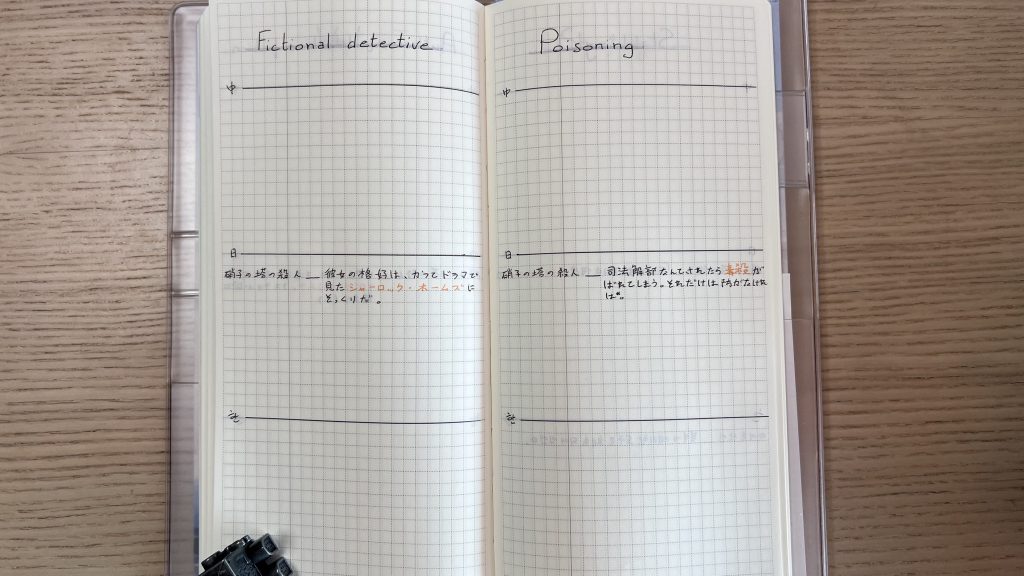 Fictional detective
中
日
硝子の塔の殺人 — 彼女の格好は、かつてドラマで
見たシャーロック・ホームズに
そっくりだ。
한
Poisoning
中
日
硝子の塔の殺人 — 司法解剖なんてされたら毒殺が
ばれてしまう。それだけは防がなければ
ば。
한